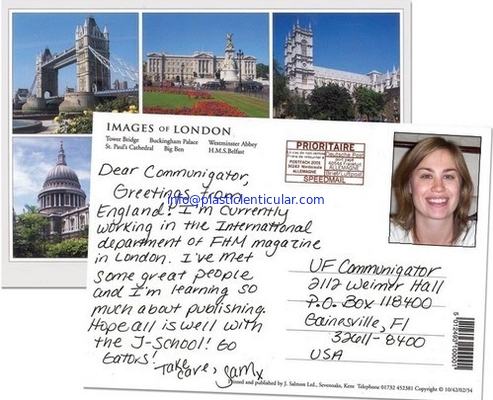 IMAGES OF LONDON
Tower Bridge Buckingham Palace Westminster Abbey
St. Paul's Cathedral Big Ben H.M.S.Belfast
PRIORITAIRE
Deutsche Post
ALLEMAGNE
SPEEDMAIL
Dear Communigator,
Greetings from
England! I'm currently
working in the International
department of FHM magazine
in London. I've met
some great people
and I'm learning so
much about publishing.
Hope all is well with
the J-School! Go
Gators!
Take care, Sam x
info@plastidenticular.com
UF Communigator
2112 Weimer Hall
P.O. Box 118400
Gainesville, Fl
32611-8400
USA
Printed and published by J. Salmon Ltd., Sevenoaks, Kent Telephone 01732 452381 Copyright © 10/42/02/54